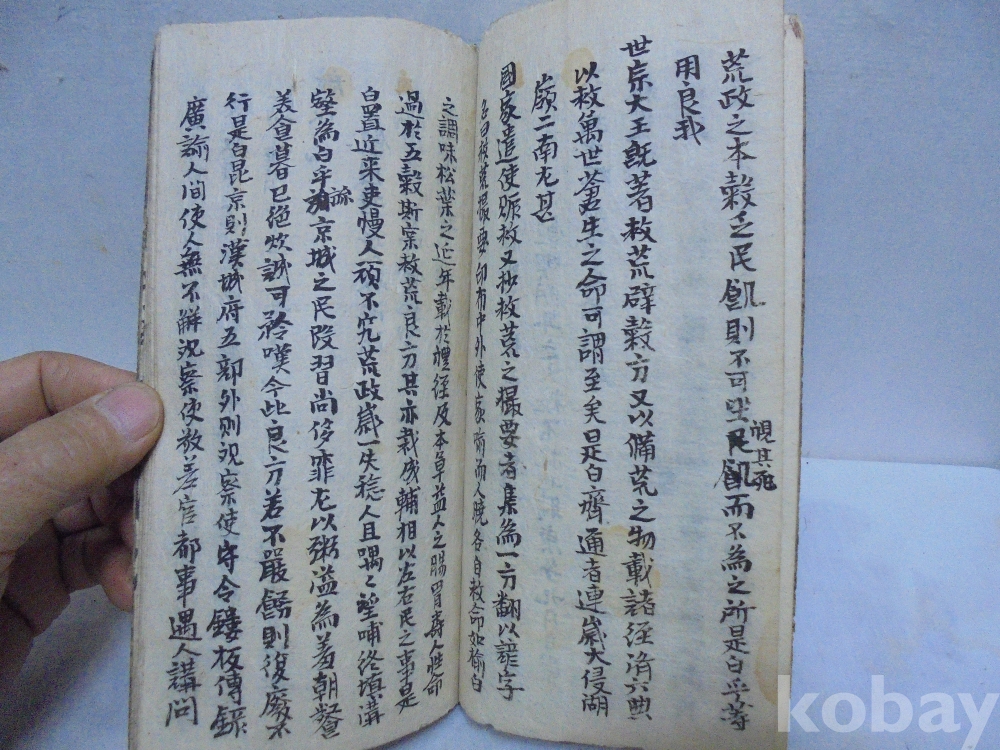 荒政之本穀乏民飢則不可坐視其死民飢而不為之所是白乎等
用良我
世宗大王既著救荒辟穀方又以備荒之物載諸經濟六典
以救萬世蒼生之命可謂至矣是白齊通者連歲大侵湖
嶺二南尤甚
國家遣使賑救又抄救荒之撮要者集為一方翻以諺字
名曰救荒撮要印布中外使家喻而人曉各自救命如榆白
之調味松葉之近年載於禮經及本草益人之腸胃壽人性命
過於五穀斯案救荒良方其亦裁成輔相以左右民之事是
白置近来吏慢人頑不究荒政歲一失稔人且喁〻望哺終填溝
壑為白乎 旀京城之民段習尚侈靡尤以粥溢為羞朝饗
美食暮已絶炊誠可矜嘆今此良方若不嚴飭則復廢不
行是白昆京則漢城府五部外則觀察使守令鏤板傳錄
廣諭人間使人無不解觀察使教差官都事遇人講問
kobay